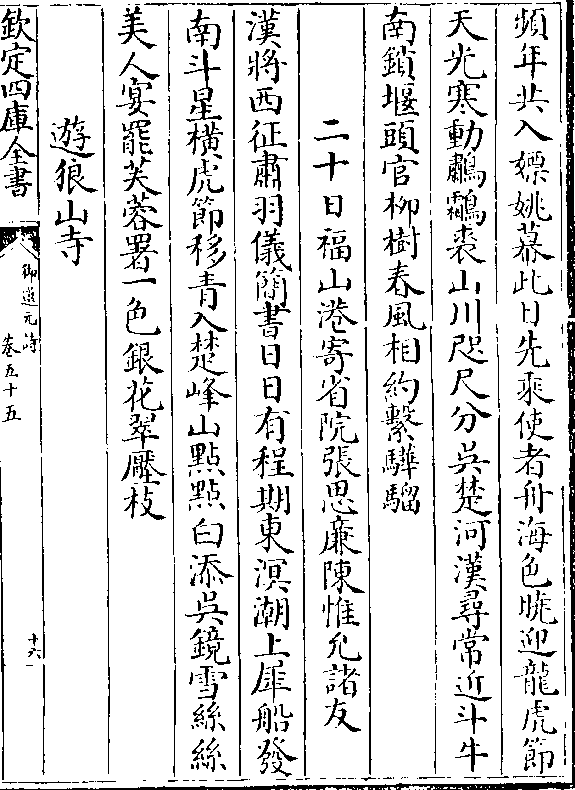 頻年共入嫖姚幕此日先乘使者舟海色曉迎龍虎節
天光寒動鷫鸘裘山川咫尺分吳楚河漢尋常近斗牛
南鎖堰頭官柳樹春風相約繫驊騮
二十日福山港寄省院張思廉陳惟允諸友
漢將西征肅羽儀簡書日日有程期東溟潮上犀船發
南斗星橫虎節移青入楚峰山點點白添吳鏡雪絲絲
美人宴罷芙蓉署一色銀花翠壓枝
遊狼山寺
欽定四庫全書
御選元詩
卷五十五
十六